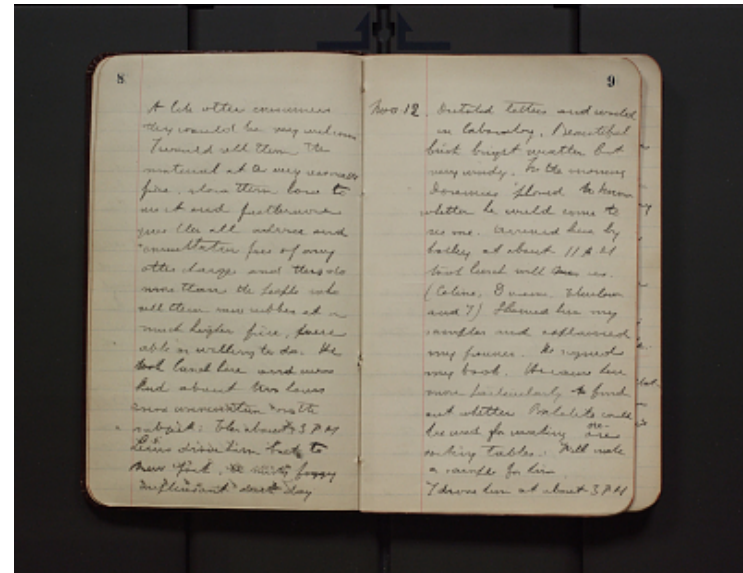 8
A little other consumers
they would be very welcome
I would sell them the
material at a very reasonable
price, show them how to
use it and furthermore
give them all advice and
consultation free of any
other charge and this is
more than the people who
sell them raw rubber at a
much higher price, were
able or willing to do. He
took lunch here and we
had about two hours
conversation on the
subject. At about 3 PM
drove him back to
New York. foggy
unpleasant dark day
9
Nov. 12. Dictated letters and worked
in laboratory. Beautiful
brisk bright weather but
very windy. In the morning
phoned to know
whether he could come to
see me. Arrived here by
trolley at about 11 A.M.
took lunch with us.
(Celine,
and I) Showed him my
samples and explained
my process. He signed
my book. He came here
more particularly to find
out whether Bakelite could
be used for making
tables. Will make
a sample for him
I drove him at about 3 PM